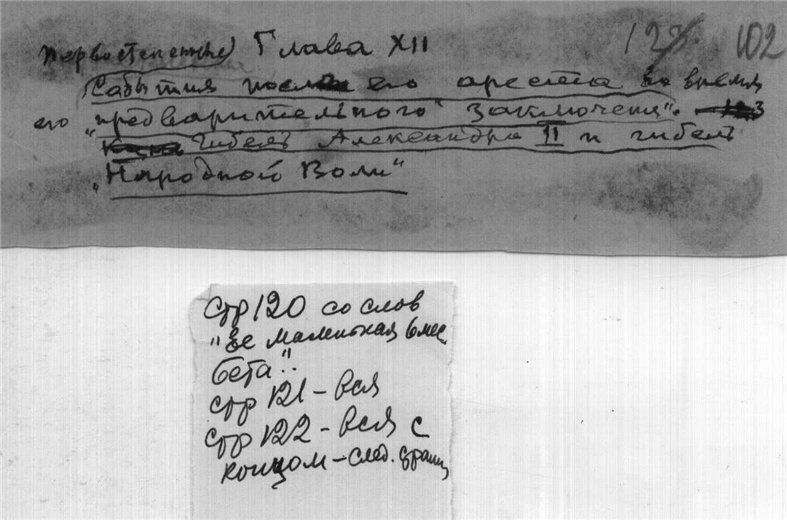 Глава XII
123. 102
События после его ареста во время
его "предварительного" заключения".
Гибель Александра II и гибель
"Народной Воли"
стр 120 со слов
маленькая 6 мес.
стр 121 - вся
стр 122 - вся с
концом - след. страниц